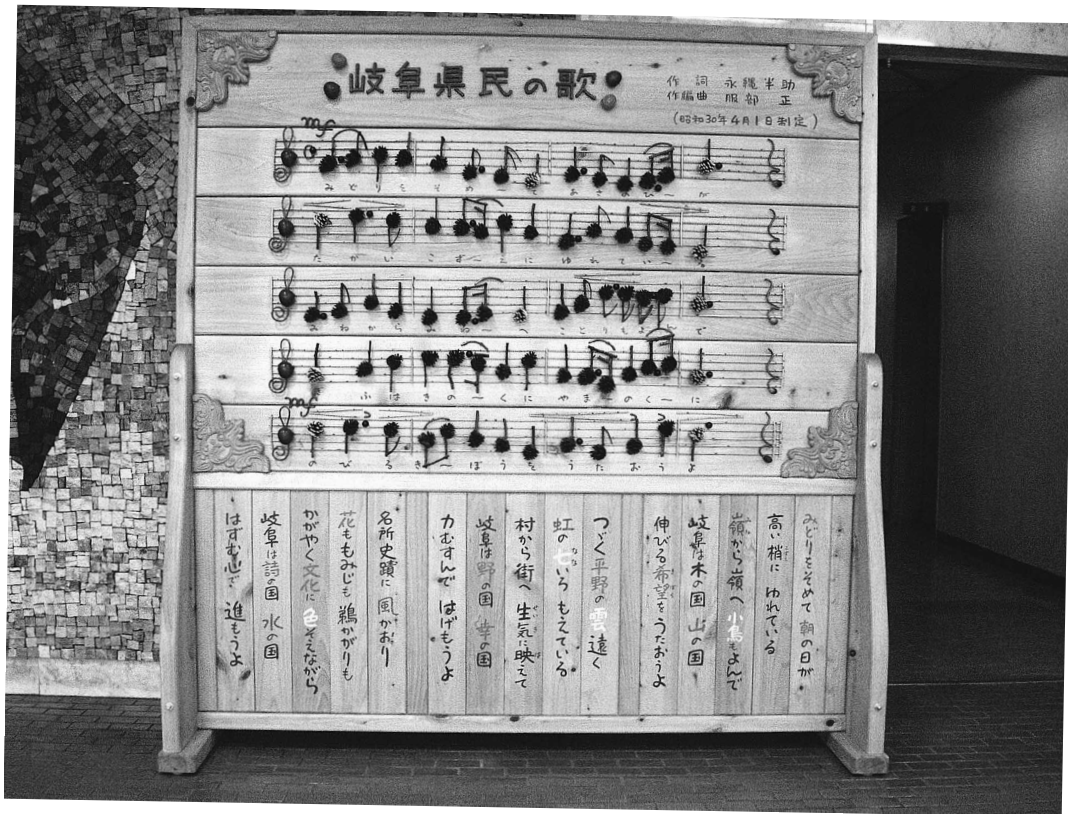 岐阜県民の歌
作詞 永縄半助
作編曲 服部 正
(昭和30年4月1日制定)
みどりをそめ〜て あさのひ〜が
たかいこず〜えに ゆれてい〜る
みねからみね〜へ ことりもよんで
ぶはきの〜くに やま〜のく〜に
のびるき〜ぼうを うたおうよ
みどりをそめて 朝の日が
高い梢に ゆれている
嶺から嶺へ 小鳥もよんで
岐阜は木の国 山の国
伸びる希望を うたおうよ
つゞく平野の 雲遠く
虹の七いろ もえている
村から街へ 生気に映えて
岐阜は野の国 幸の国
力むすんで はげもうよ
名所史蹟に 風かおり
花ももみじも 鵜かがりも
かがやく文化に 色そえながら
岐阜は詩の国 水の国
はずむ心で 進もうよ